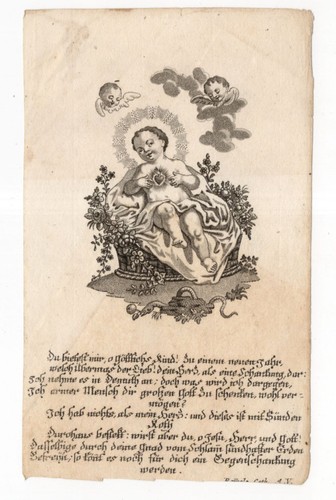 Du bietest mir, o göttlichs Kind! zu einem neuen Jahr,
welch Ubermas der Lieb! dein Herz als eine Schankung dar:
Ich nehme es in Demuth an: doch was wird ich dargegen,
Ich armer Mensch dir großen Gott zu schenken, wohl ver-
mögen?
Ich hab nichts, als mein Herz: und dieses ist mit Sünden
Koth
Durchaus befleckt: wirst aber du, o Jesu, Herr, und Gott!
Dasselbige durch deine Gnad vom Schlam sündhafter Erden
Befreyn, so könt es noch für dich ein Gegenschankung
werden.